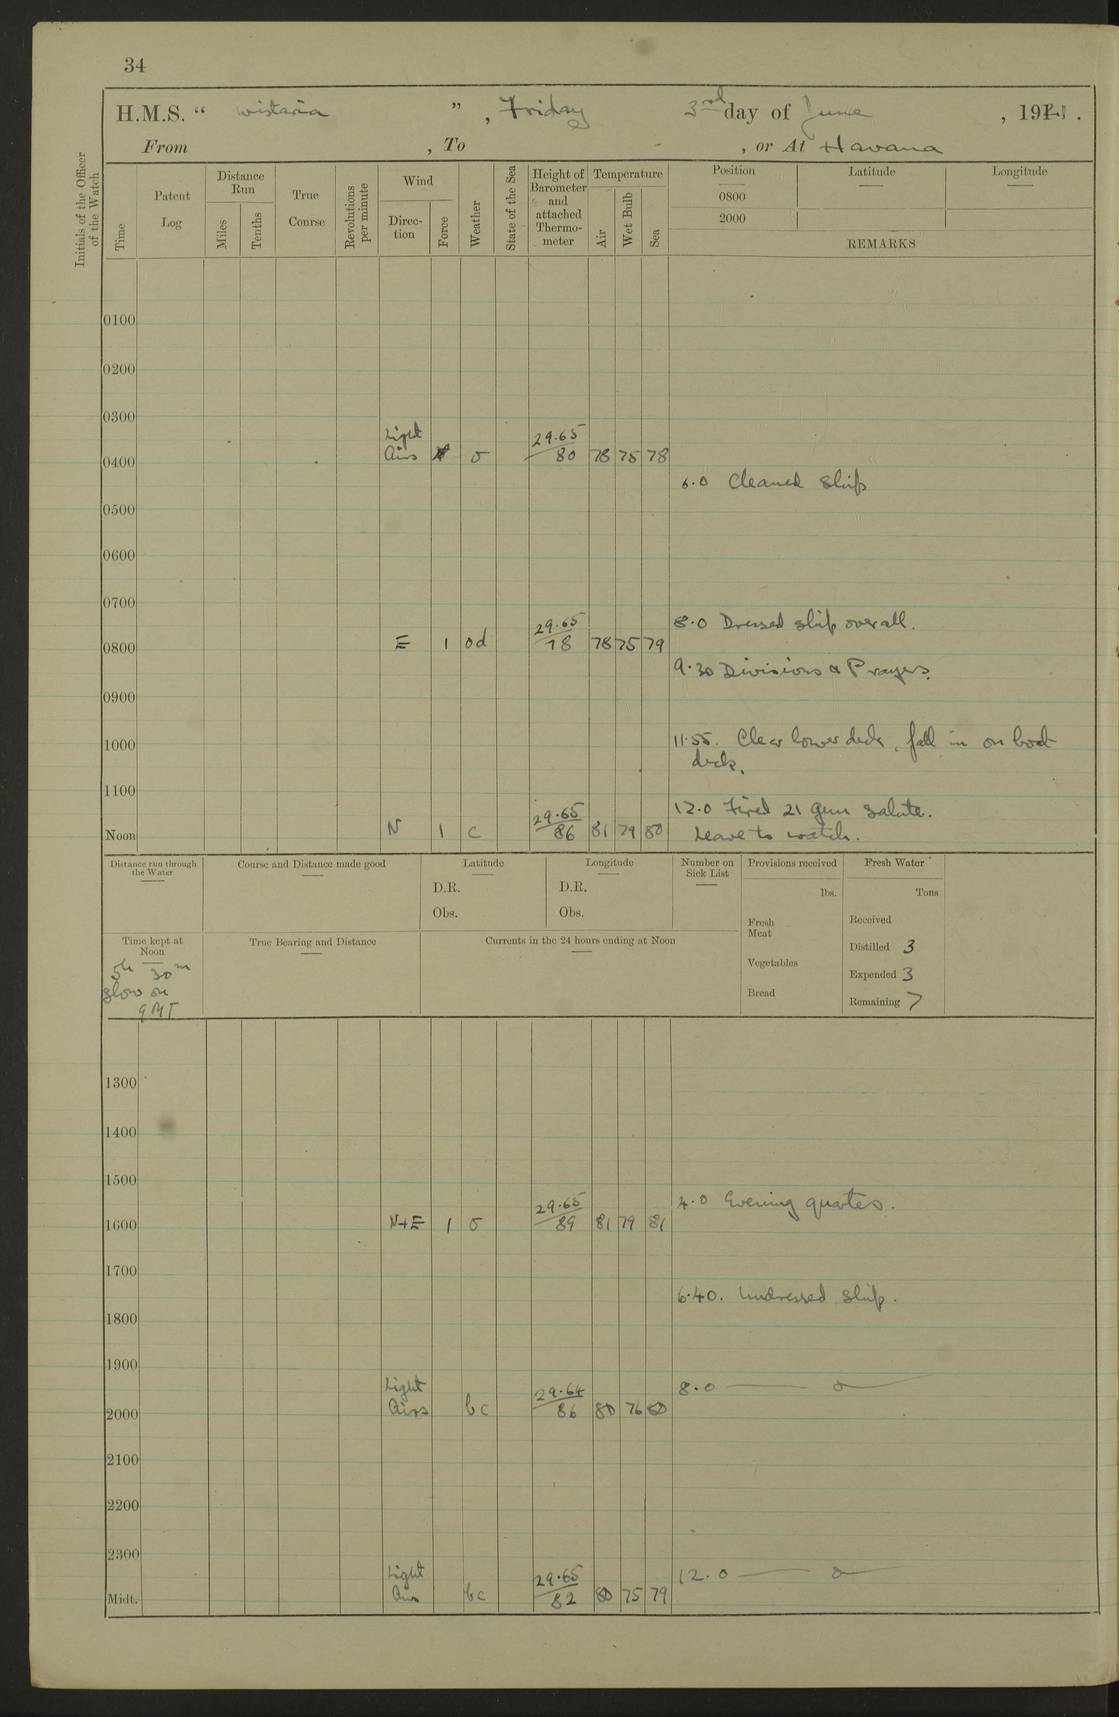 34
H.M.S. “ Wistaria ” , Friday 3rd day of June , 1921 .
From , To , or At Havana
Initials of the Officer of the Watch
Time
Patent Log
Distance Run
Miles
Tenths
True Course
Revolutions per minute
Wind
Direc-tion
Force
Weather
State of the Sea
Height of Barometer and attached Thermo-meter
Temperature
Air
Wet Bulb
Sea
Position Latitude Longitude
0800
2000
REMARKS
0100
0200
0300
Light 29.65
0400 Airs o 80 78 75 78
6.0 Cleaned ship
0500
0600
0700
29.65 8.0 Dressed ship overall.
0800 E 1 od 78 78 75 79
9.30 Divisions & Prayers.
0900
1000 11.55. Clear lower deck, fall in on boat
deck.
1100
29.65 12.0 Fired 21 gun salute.
Noon N 1 c 86 81 79 80 Leave to watch.
Distance run through the Water
Course and Distance made good
Latitude
D.R.
Obs.
Longitude
D.R.
Obs.
Number on Sick List
Provisions received
lbs.
Fresh Meat
Vegetables
Bread
Fresh Water
Tons
Received
Distilled 3
Expended 3
Remaining 7
Time kept at Noon
5h 30m
slow on
GMT
True Bearing and Distance
Currents in the 24 hours ending at Noon
1300
1400
1500
29.65 4.0 Evening quarters.
1600 N+E 1 o 89 81 79 81
1700
6.40. Undressed ship.
1800
1900
Light 29.64 8.0 —— o ——
2000 Airs bc 86 80 76 80
2100
2200
2300
Light 29.65 12.0 —— o ——
Midt. Airs bc 82 80 75 79